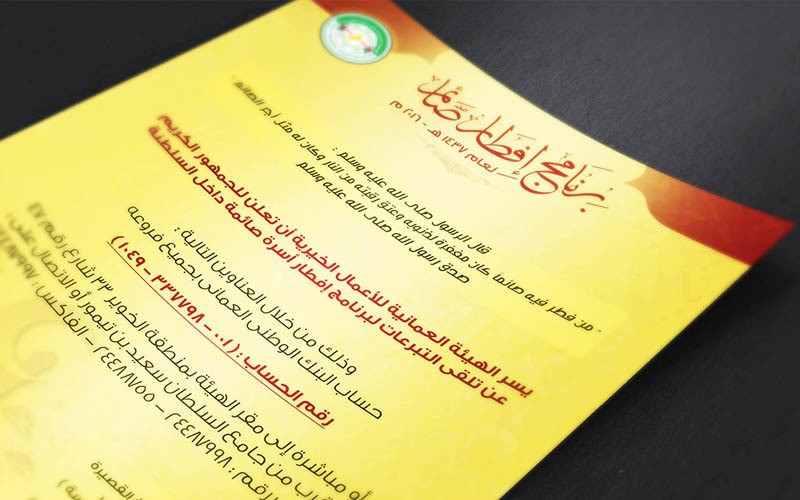 برنامج إفطار صائم
لعام ١٤٣٧ هـ - ٢٠١٦ م
قال الرسول صلى الله عليه وسلم :
" من فطر فيه صائما كان مغفرة لذنوبه وعتق رقبته من النار وكان له مثل أجر الصائم "
صدق رسول الله صلى الله عليه وسلم
يسر الهيئة العمانية للأعمال الخيرية أن تعلن للجمهور الكريم
عن تلقي التبرعات لبرنامج إفطار أسرة صائمة داخل السلطنة
وذلك من خلال العناوين التالية :
حساب البنك الوطني العماني بجميع فروعه
رقم الحساب : ( ٠٠١ - ٣٣٧٧٩٨ - ١٠٤٩ )
أو مباشرة إلى مقر الهيئة بمنطقة الخوير ٣٣ شارع رقم ٤٧
قرب من جامع السلطان سعيد بن تيمور أو الاتصال على
لرقم : ٢٤٤٨٧٩٩٨ - ٢٤٤٨٨٧٥٥ - الفاكس :
القصيرة